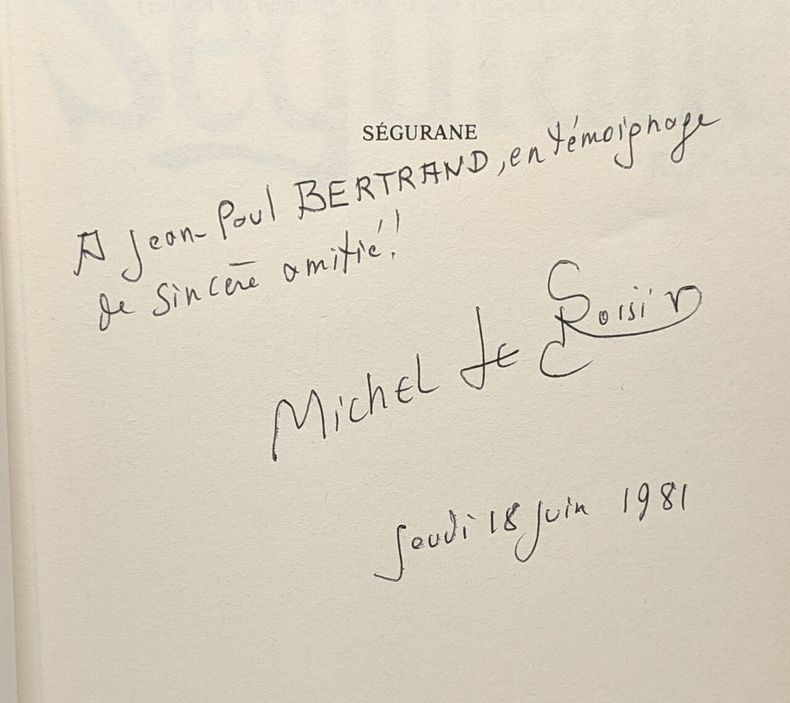 SÉGURANE
A Jean-Paul BERTRAND, en témoignage
de sincère amitié!
Michel de Grosourdy
Jeudi 18 juin 1981